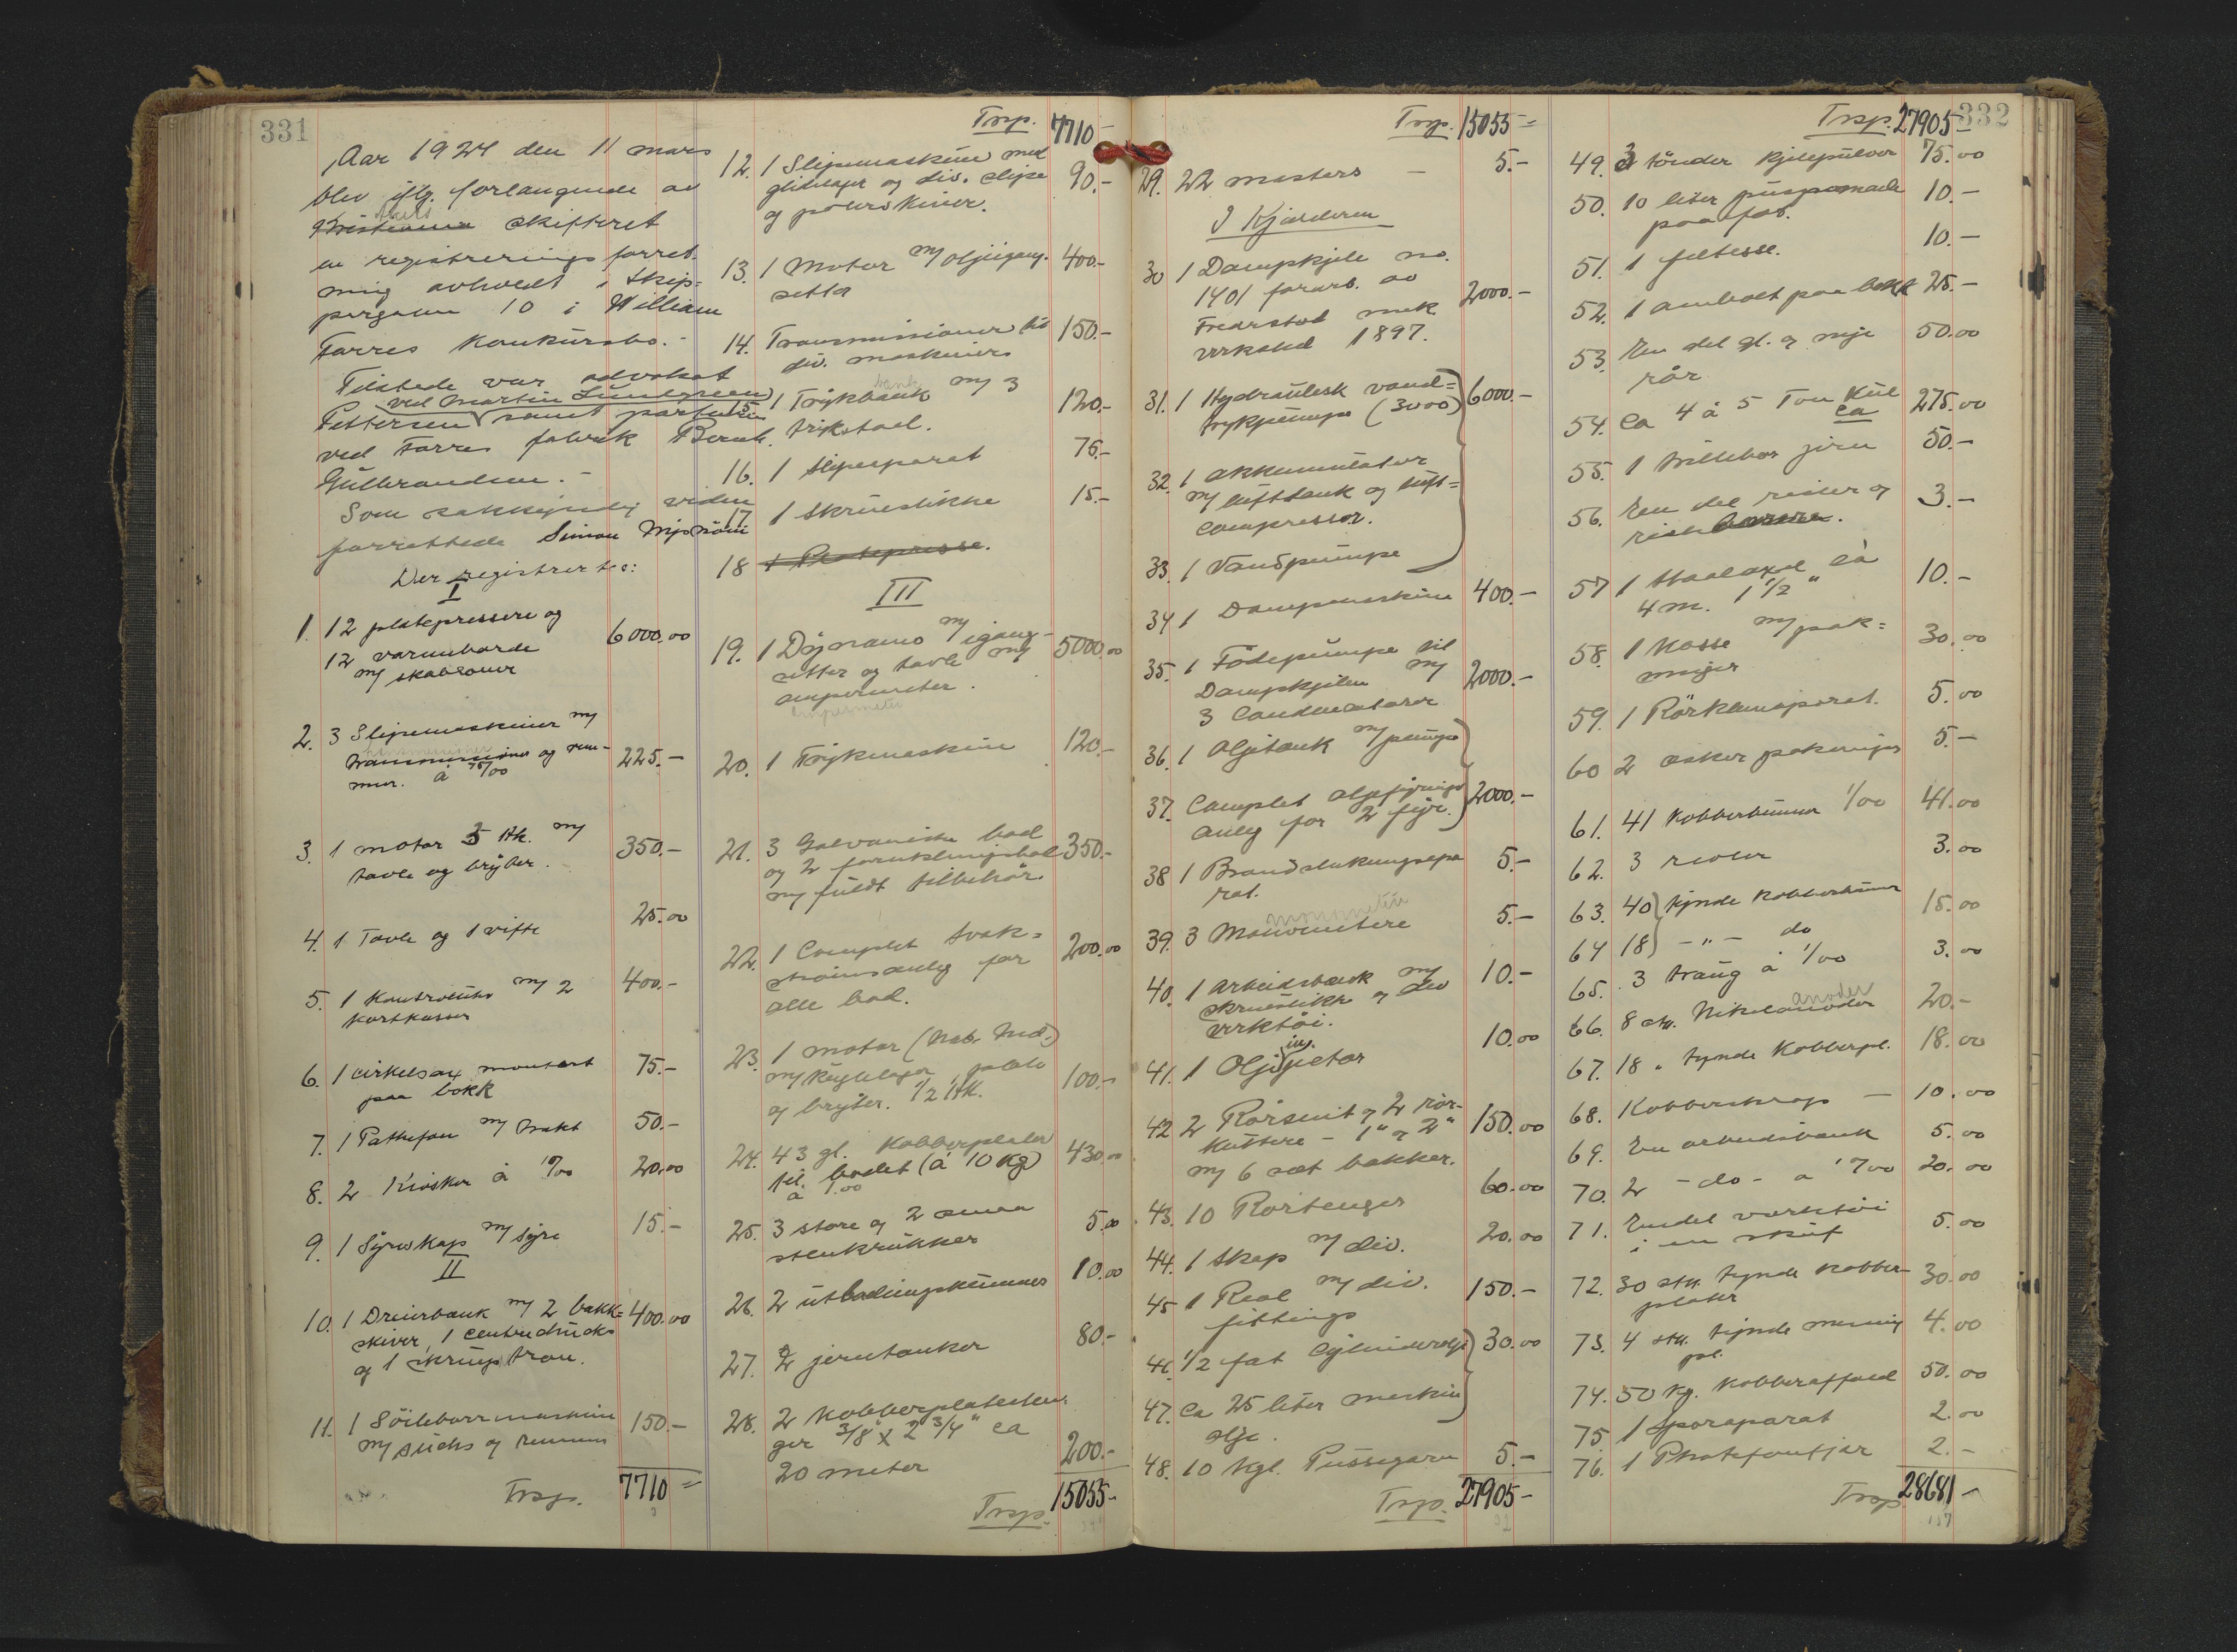 331
Aar 1924 den 11 mars
blev iflg. forlangende av
Akers skifteret
en registrerings forret-
ning avholdt i Skip-
pergaten 10 i William
Farres konkursbo.-
Tilstede var advokat
ved Martin Lundgreen
Pettersen samt
ved Farres fabrik Bernh.
Gulbrandsen.
Som sakkyndig
forrettede Simon
Der registrertes:
I
1. 12 platepressere og 6000.00
12 varmeborde
m/ skabloner
2. 3 Slipemaskiner m/
transmissioner og rem-
mer. á 75/00 225.-
3. 1 motor 5 Hk. m/ 350.-
tavle og bryter.
4. 1 Tavle og 1 vifte 25.00
5. 1 Kontroluhr m/ 2 400.-
kortkasser
6. 1 cirkelsax montert 75.-
paa bokk
7. 1 Pathefon m/ trakt 50.-
8. 2 Kiosker á 10/00 20.00
9. 1 Syreskap m/ syre 15.-
II
10. 1 Dreierbank m/ 2 bakk- 400.00
skiver, 1
og 1
11. 1 Söileborrmaskine 150.-
m/ og remmer
Trsp. 7710=
Trsp. 7710-
12. 1 Slipemaskine med 90.-
glidelager og div. slipe
og polerskiver.
13. 1 Motor m/ oljeigang- 400.-
setter
14. Transmissioner til 150.-
div. maskiner
15. 1 Trykbænk m/ 3 120.-
trykstaal.
16. 1 Slipeaparat 75.-
17 1 Skruestikke 15.-
18 1 Platepresse.
III
19. 1 Dynamo m/ igang- 5000.00
setter og tavle m/
amperemeter.
amperemeter
20. 1 Trykmaskine 120.-
21. 3 Galvaniske bad 350.-
og 2 forniklingsbad
m/ fuldt tilbehör.
22. 1 Complet svak- 200.00
strömsanleg for
alle bad.
23. 1 motor (Nab. Ind.)
m/ kuglelager, 100.-
og bryter. 1/2 HK.
24. 43 gl. Kobberplater 430.00
til badet (á 10 Kg)
á 1.00
25. 3 store og 2 smaa 5.00
stenkrukker
26. 2 utbadningskummer 10.00
27. 2 jerntanker 80.-
28. 2 kobberplatesten-
ger 3/8 x 2 3/4" ca 200.-
20 meter
Trsp. 15055-
Trsp. 15055=
29. 22 masters - 5.-
I Kjælderen
30 1 Dampkjele no.
1401 forarb. av 2000.-
Fredrstad mek
verksted 1897.
31. 1 Hydraulisk vand- 6000.-
trykpumpe (3000)
32. 1 akkumulator
m/ lufttank og luft-
compressor.
33. 1 Vandpumpe
34 1 Dampmaskine 400.-
35. 1 Födepumpe til
Dampkjelen m/ 2000.-
3 Condensatorer
36. 1 Oljetank m/ pumpe
37. Complet oljefyrings 2000.-
anleg for 2 fyr.
38 1 Brandslukningsapa 5.-
rat.
manometer
39. 3 Manometere 5.-
40. 1 arbeidsbænk m/ 10.-
skruestikke og div
verktöi.
41. 1 Oljeinjektor 10.00
42 2 Rörsnit og 2 rör-
kuttere - 1" og 2" 150.00
m/ 6 sæt bakker.
43. 10 Rörtenger 60.00
44. 1 Skap m/ div. 20.00
45 1 Reol m/ div. 150.-
fittings
46. 1/2 fat Cylinderolje 30.00
47. Ca 25 liter maskin
olje.
48. 10 kgl. Pussegarn 5.-
Trsp. 27905-
Trsp. 27905-
332
49. 3 tönder kjelepulver 75.00
50. 10 liter puspomade 10.-
paa fat.
51. 1 feltesse. 10.-
52. 1 ambolt paa bokk 25.-
53. En del gl. og nye 50.00
rör
54. Ca 4 á 5 Ton Kul 275.00
ca
55. 1 trillebor jern 50.-
56. En del rister og 3.-
57 1 Staalaxel ca
4 m. 1 1/2" 10.-
58. 1 Kasse m/ pak-
ninger 30.00
59. 1 Rörklemaparat. 5.00
60 2 æsker pakninger 5.-
61. 41 Kobberkummer 1/00 41.00
62. 3 reoler 3.00
63. 40 tynde kobberkummer
64 18 - " - do 15.00
65. 3 traug á 1/00 3.00
anoder
66. 8 stk. Nikelanoder 20.-
67. 18 " tynde Kobberpl. 18.00
68. Kobberskrap - 10.00
69. En arbeidsbænk 5.00
70. 2 - do - a 10/00 20.00
71. Endel værktöi
i en skuf 5.00
72. 30 stk. tynde kobber- 30.00
plater
73. 4 stk. tynde messing 4.00
pl.
74. 50 kg. Kobberaffald 50.00
75. 1 Sporaparat 2.00
76. 1 Phatefonfjær 2.-
Trsp. 28681-